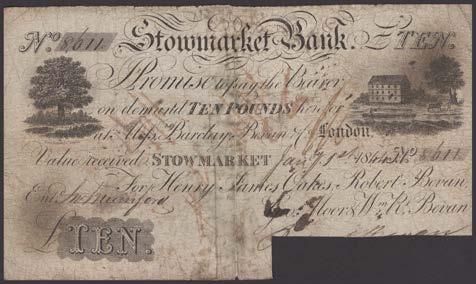 No. 8611 Stowmarket Bank. £TEN.
I Promise to pay the Bearer
on demand TEN POUNDS here or
at Messrs Barclay Bevan & Co London.
Value received STOWMARKET Jany 1st No 8611
For Henry James Oakes, Robert Bevan
Entd Moor & Wm R. Bevan
£TEN.